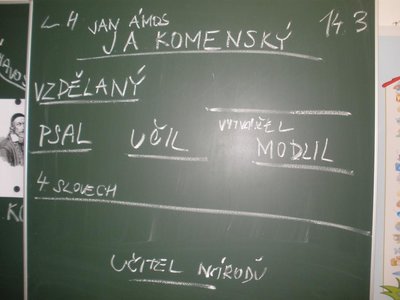 L H JAN ÁMOS 14.3
J A KOMENSKÝ
VZDĚLANÝ
PSAL UČIL MODLIL
4 SLOVECH
UČITEL NÁRODŮ